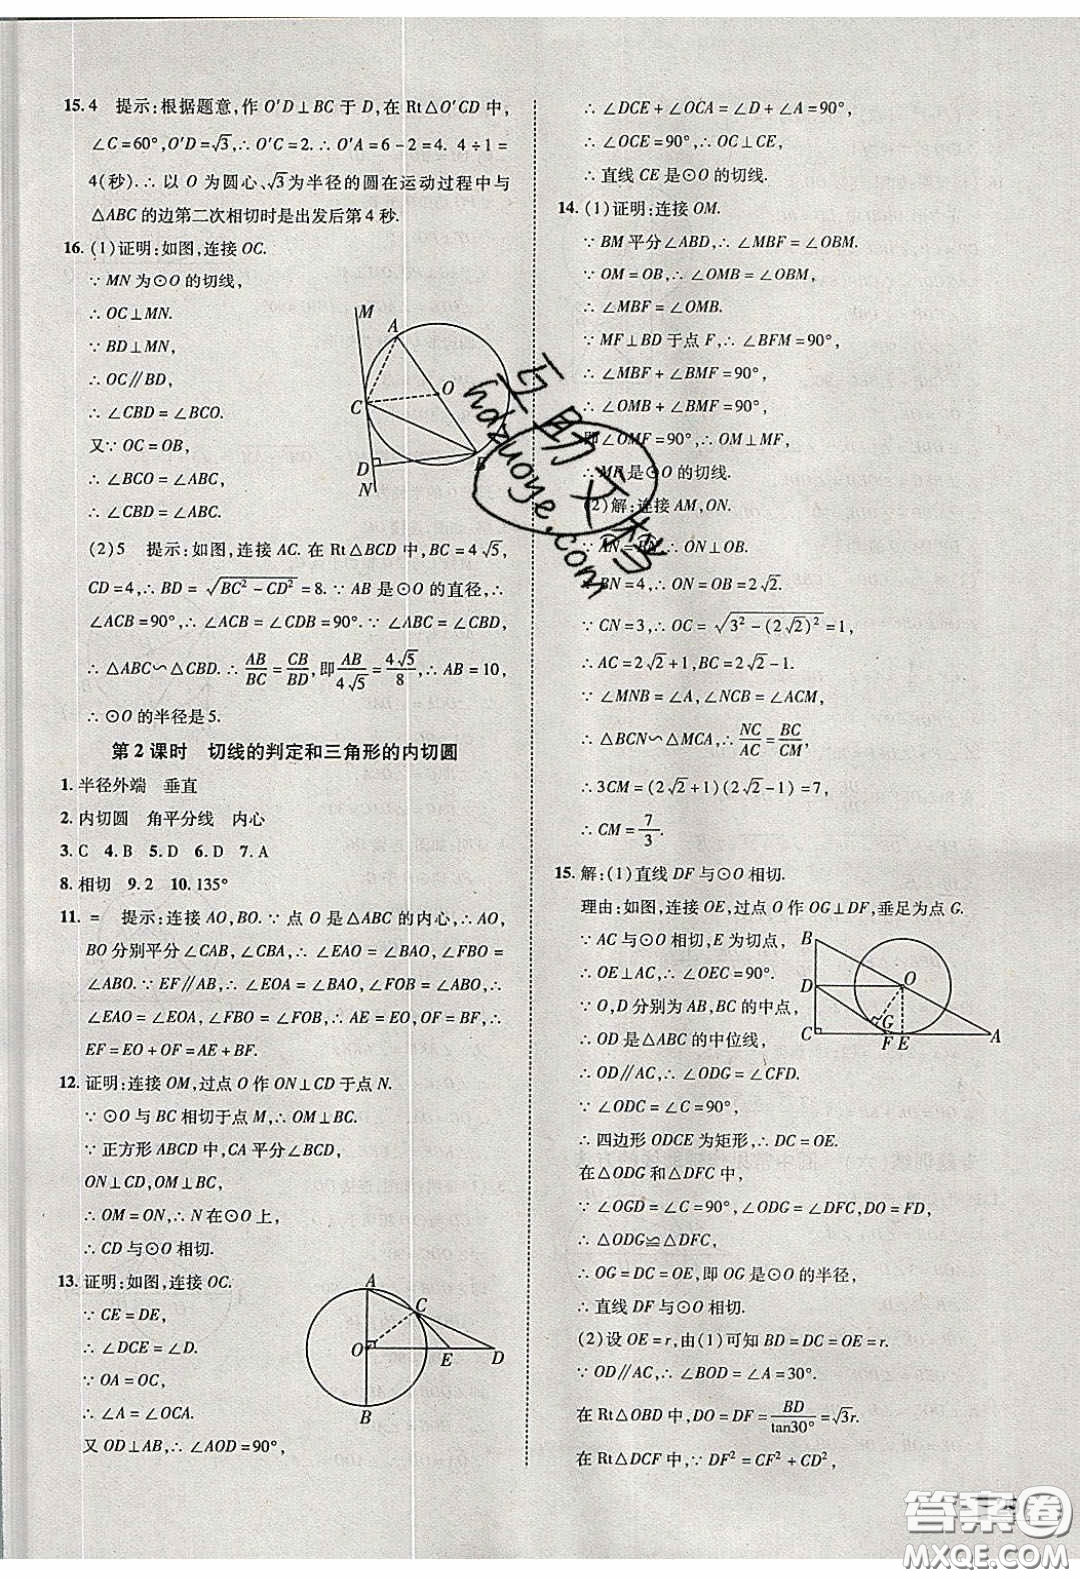 15.4 提示:根据题意,作 O'D⊥BC 于 D,在 Rt△O'CD 中,
∠C=60°,O'D=√3,∴O'C=2.∴O'A=6-2=4. 4÷1=
4(秒).∴以 O 为圆心、√3为半径的圆在运动过程中与
△ABC 的边第二次相切时是出发后第 4 秒.
16.(1)证明:如图,连接 OC.
∵MN 为⊙O 的切线,
∴OC⊥MN.
∵BD⊥MN,
∴OC∥BD,
∴∠CBD=∠BCO.
又∵OC=OB,
∴∠BCO=∠ABC,
∴∠CBD=∠ABC.
M
A
O
C
D
B
N
(2)5 提示:如图,连接 AC. 在 Rt△BCD 中,BC=4√5,
CD=4,∴BD=√(BC²-CD²)=8.∵AB 是⊙O 的直径,∴
∠ACB=90°,∴∠ACB=∠CDB=90°.∵∠ABC=∠CBD,
∴△ABC∽△CBD.∴AB/BC=CB/BD,即AB/4√5=4√5/8,∴AB=10,
∴⊙O 的半径是5.
第 2 课时 切线的判定和三角形的内切圆
1.半径外端 垂直
2.内切圆 角平分线 内心
3.C 4.B 5.D 6.D 7.A
8.相切 9.2 10.135°
11.= 提示:连接 AO,BO.∵点 O 是△ABC 的内心,∴AO,
BO 分别平分∠CAB,∠CBA,∴∠EAO=∠BAO,∠FBO=
∠ABO.∵EF∥AB,∴∠EOA=∠BAO,∠FOB=∠ABO,∴
∠EAO=∠EOA,∠FBO=∠FOB,∴AE=EO,OF=BF,∴
EF=EO+OF=AE+BF.
12.证明:连接 OM,过点 O 作 ON⊥CD 于点 N.
∵⊙O 与 BC 相切于点 M,∴OM⊥BC.
∵正方形 ABCD 中,CA 平分∠BCD,
ON⊥CD,OM⊥BC,
∴OM=ON,∴N 在⊙O 上,
∴CD 与⊙O 相切.
13.证明:如图,连接 OC.
∵CE=DE,
∴∠DCE=∠D.
∵OA=OC,
∴∠A=∠OCA.
又 OD⊥AB,∴∠AOD=90°,
A
C
O
E
D
B
∴∠DCE+∠OCA=∠D+∠A=90°,
∴∠OCE=90°,∴OC⊥CE,
∴直线 CE 是⊙O 的切线.
14.(1)证明:连接 OM.
∵BM 平分∠ABD,∴∠MBF=∠OBM.
∵OM=OB,∴∠OMB=∠OBM,
∴∠MBF=∠OMB.
∵MF⊥BD 于点 F,∴∠BFM=90°,
∴∠MBF+∠BMF=90°,
∴∠OMB+∠BMF=90°,
即∠OMF=90°,∴OM⊥MF,
∴MF是⊙O 的切线.
(2)解:连接 AM,ON.
∵AN=BN,∴ON⊥OB.
∵BN=4,∴ON=OB=2√2.
∵CN=3,∴OC=√(3²-(2√2)²)=1,
∴AC=2√2+1,BC=2√2-1.
∵∠MNB=∠A,∠NCB=∠ACM,
∴△BCN∽△MCA,∴NC/AC=BC/CM,
∴3CM=(2√2+1)(2√2-1)=7,
∴CM=7/3.
15.解:(1)直线 DF 与⊙O 相切.
理由:如图,连接 OE,过点 O 作 OG⊥DF,垂足为点 G.
∵AC 与⊙O 相切,E 为切点,
∴OE⊥AC,∴∠OEC=90°.
∵O,D 分别为 AB,BC 的中点,
∴OD 是△ABC 的中位线,
∴OD∥AC,∴∠ODG=∠CFD.
∴∠ODC=∠C=90°,
∴四边形 ODCE 为矩形,∴DC=OE.
B
D
O
G
C
F
E
A
在△ODG 和△DFC 中,
∵∠OGD=∠C=90°,∠ODG=∠DFC,DO=FD,
∴△ODG≌△DFC,
∴OG=DC=OE,即 OG 是⊙O 的半径,
∴直线 DF 与⊙O 相切.
(2)设 OE=r,由(1)可知 BD=DC=OE=r.
∵OD∥AC,∴∠BOD=∠A=30°.
在 Rt△OBD 中,DO=DF=BD/tan30°=√3r.
在 Rt△DCF 中,∵DF²=CF²+CD²,
互助文档
hdzuoye.com
答案圈
MXQE.COM